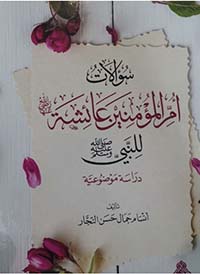 سؤالات
أم المؤمنين عائشة
للنبي ﷺ
دراسة موضوعية
تأليف
ابتسام جمال حسن النجار